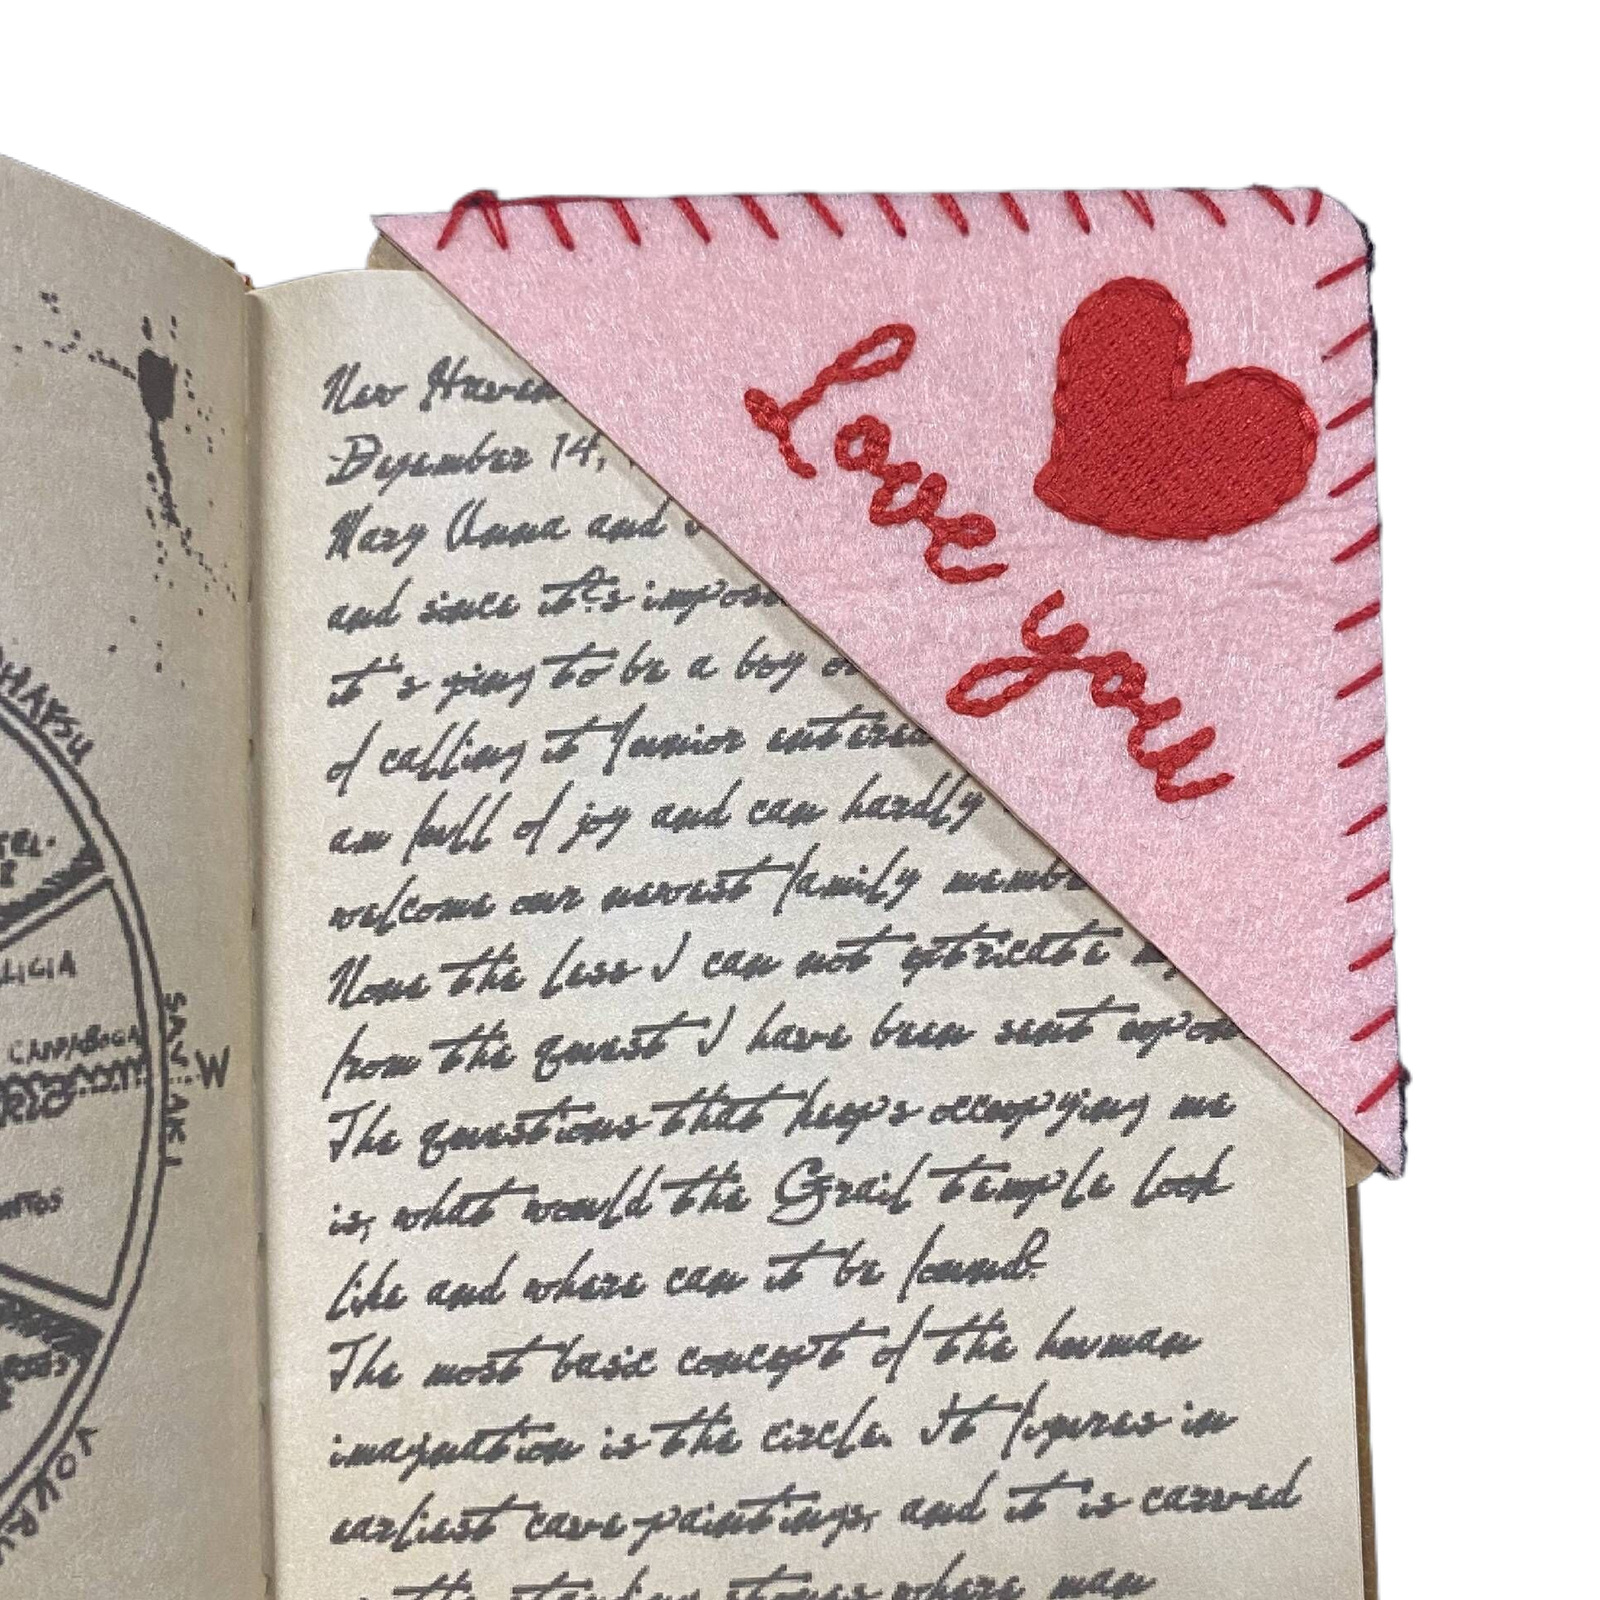 HAPSU
LICIA
CAMPABOGA
SAVLAKI
W
NTOS
love you
New Haven
December 14,
Mary Anna and
and since it's
it's going to be a boy or
of calling it Junior
am full of joy and can hardly
welcome our newest family
None the less I can not
from the quest I have been sent upon
The questions that keeps occupying me
is, what would the Grail temple look
like and where can it be found?
The most basic concept of the human
imagination is the circle. It figures in
earliest cave-paintings, and it is carved
the standing stones where man